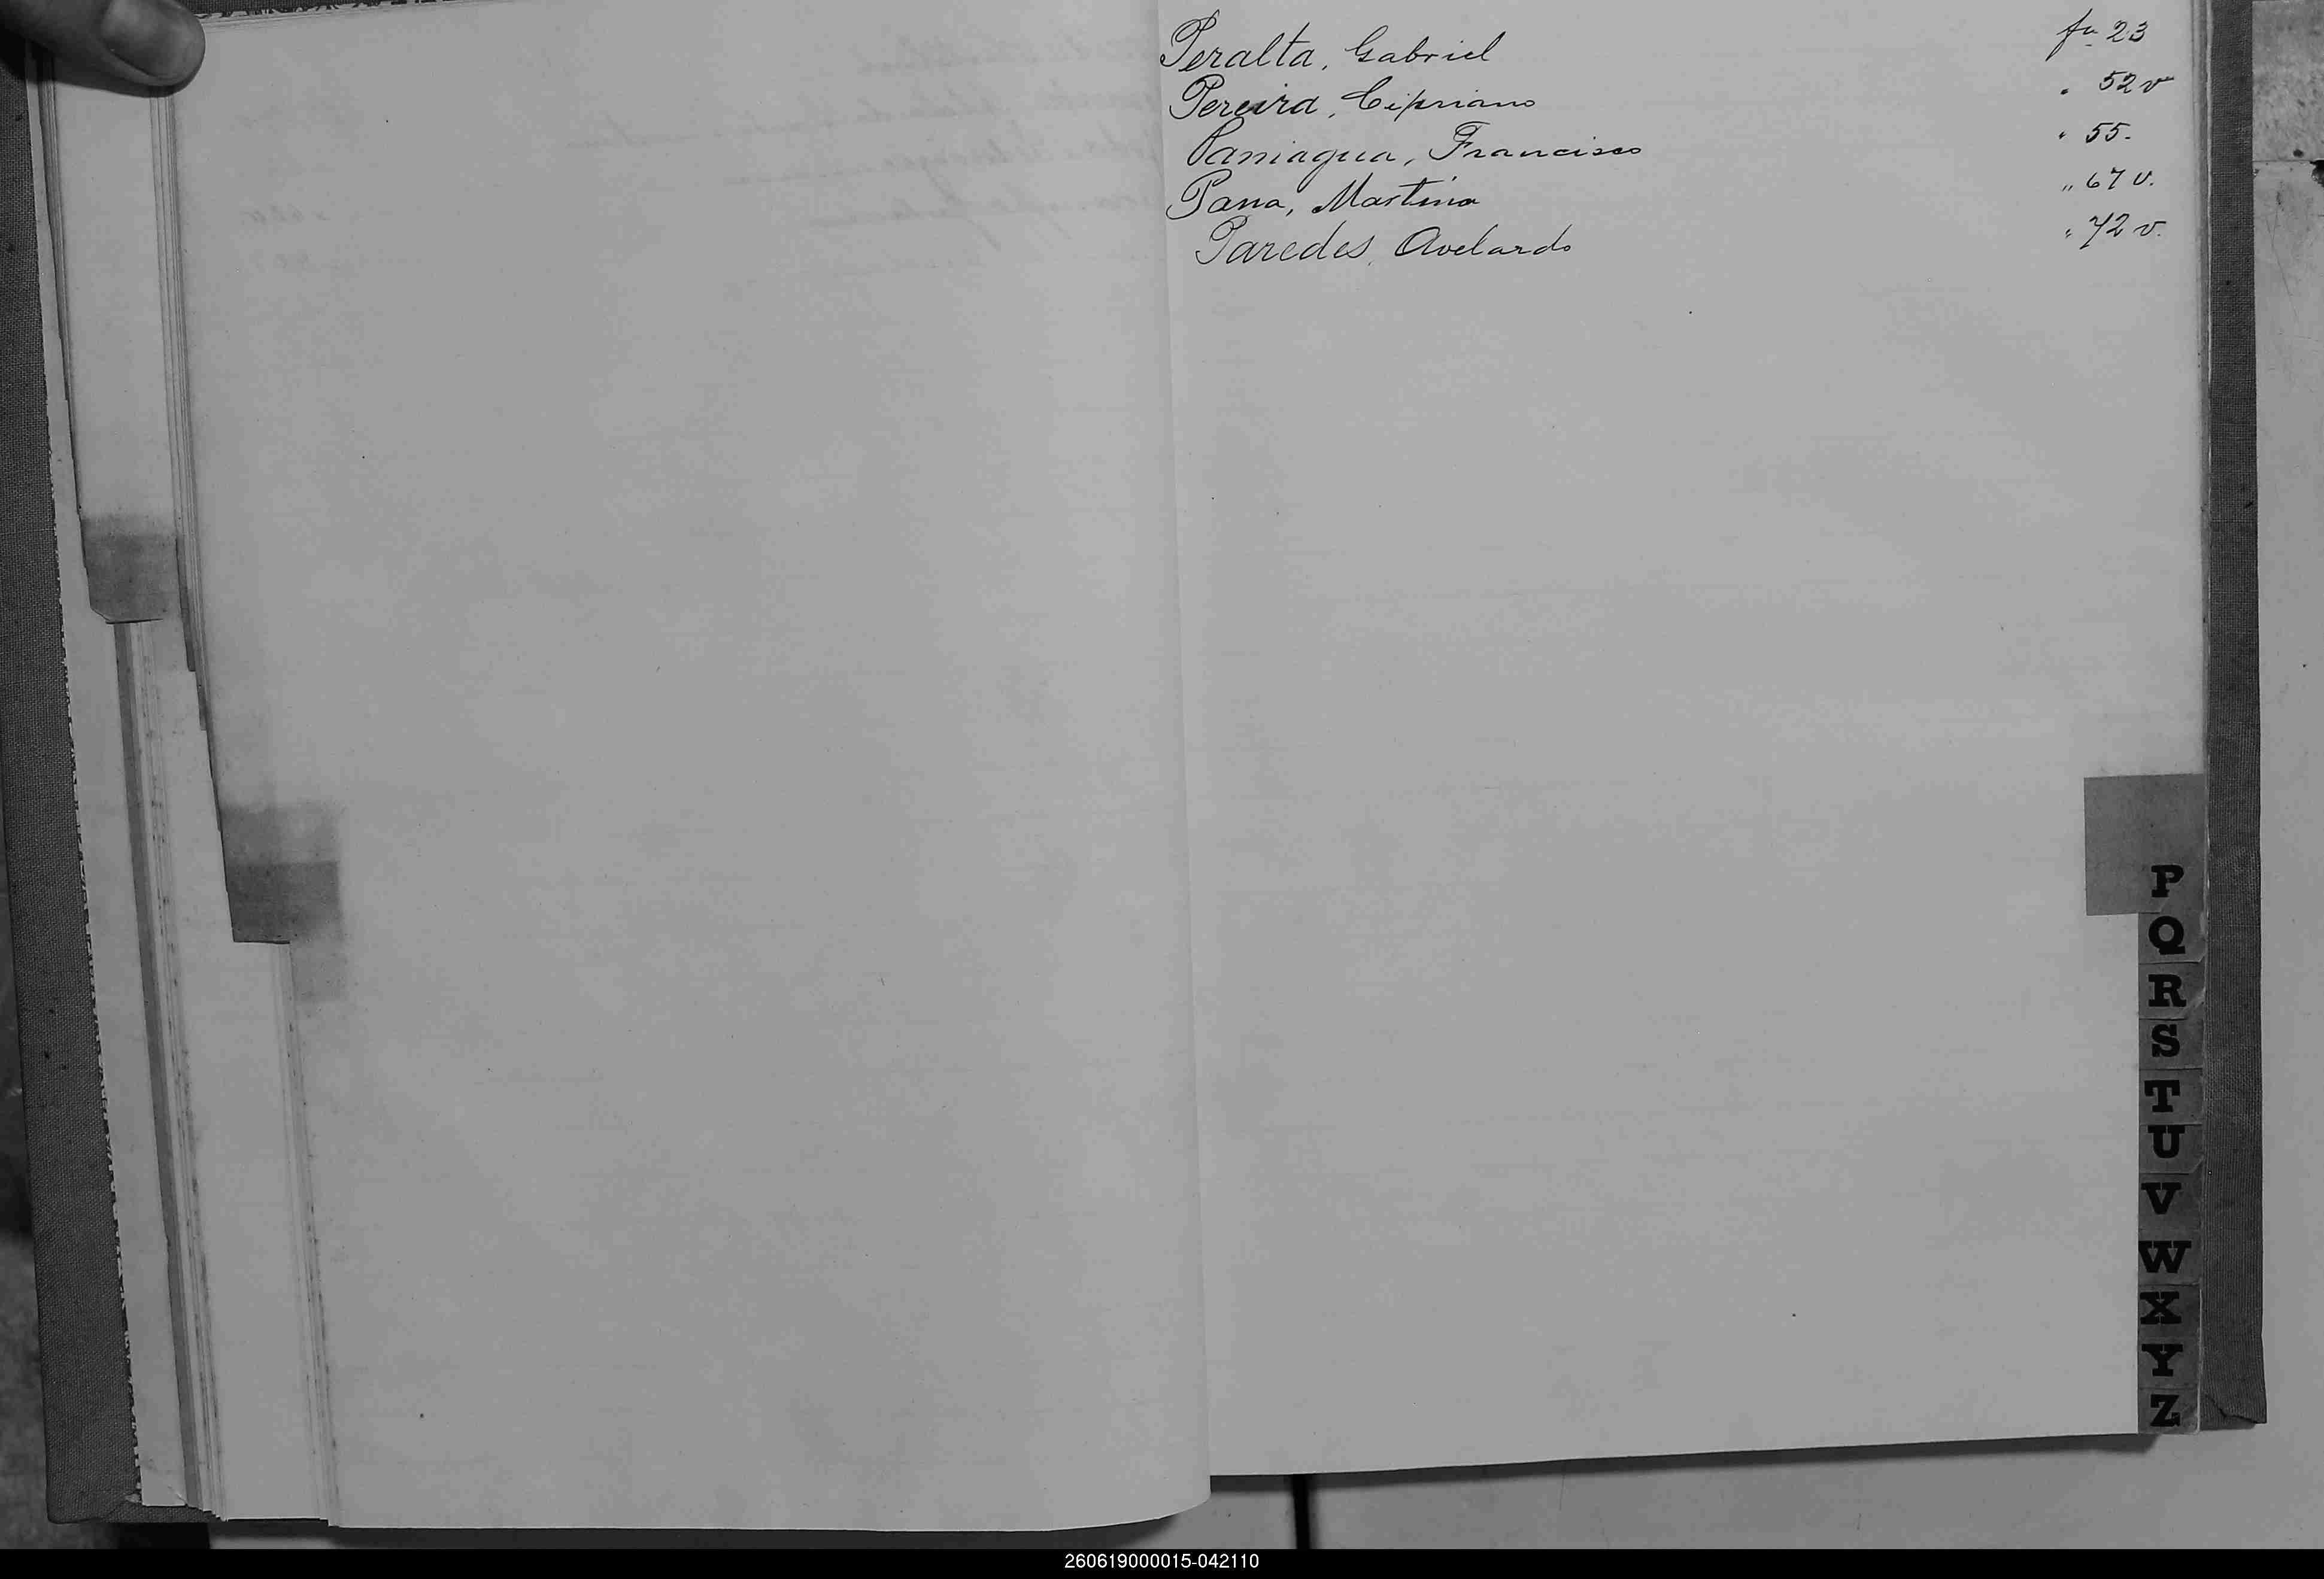 Peralta, Gabriel fs. 23
Pereira, Cipriano " 52 v
Paniagua, Francisco " 55.
Pana, Martina " 67 v.
Paredes, Avelardo " 72 v.
P
Q
R
S
T
U
V
W
X
Y
Z
260619000015-042110